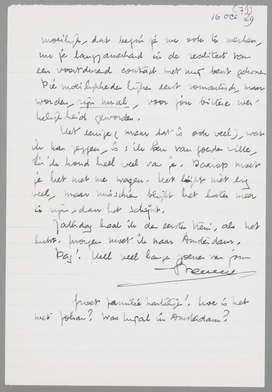 (79)
16 Oct 29
moeilijk, dat begin je nu ook te merken,
nu je langzamerhand in de realiteit van
een voortdurend contact met mij bent gekomen.
Die moeilijkheden lijken eerst romantisch, maar
worden, zijn maal, voor jou bittere wer-
kelijkheid geworden.
Het eenige (maar dat is ook veel), wat
ik kan zeggen, is: ik ben van goede wille,
en ik houd heel veel van je. Daarop moet
je het met me wagen. Het lijkt niet erg
veel, maar misschien blijkt het later meer
te zijn, dan het schijnt.
Zaterdag haal ik de eerste trein, als het
lukt. Morgen moet ik naar Amsterdam.
Dag! Heel veel lange zoenen van jou
groet familie hartelijk! Hoe is het
met Johan? Was hij al in Amsterdam?